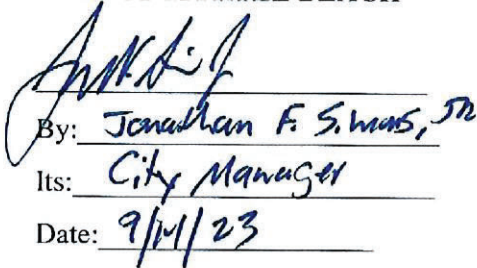 BEACH
By: Jonathan F. Simms, JR
Its: City Manager
Date: 9/14/23